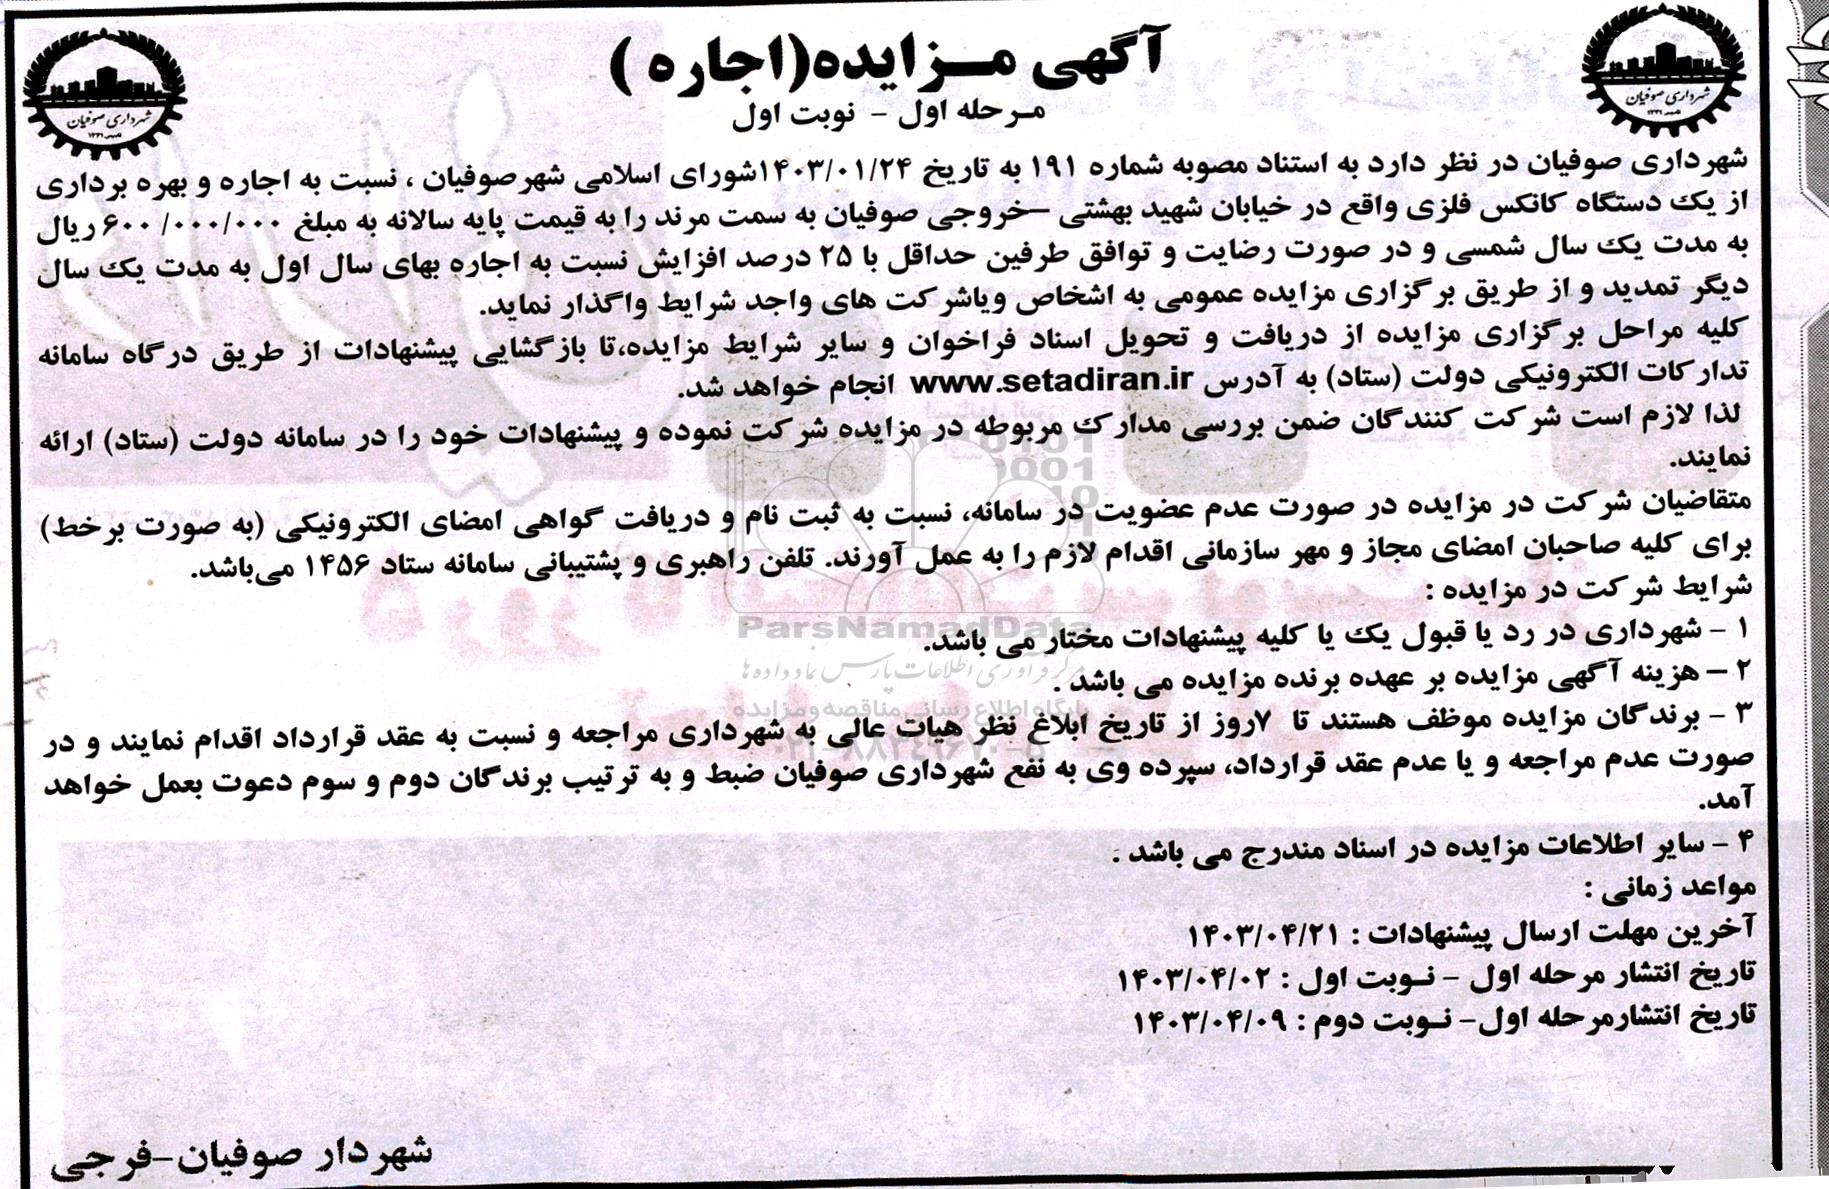 آگهی مـزایده(اجاره )
مـرحله اول - نوبت اول
شهرداری صوفیان
تاسیس ۱۳۳۱
شهرداری صوفیان
شهرداری صوفیان در نظر دارد به استناد مصوبه شماره ۱۹۱ به تاریخ ۱۴۰۳/۰۱/۲۴شورای اسلامی شهرصوفیان ، نسبت به اجاره و بهره برداری
از یک دستگاه کانکس فلزی واقع در خیابان شهید بهشتی –خروجی صوفیان به سمت مرند را به قیمت پایه سالانه به مبلغ ۶۰۰/۰۰۰/۰۰۰ ریال
به مدت یک سال شمسی و در صورت رضایت و توافق طرفین حداقل با ۲۵ درصد افزایش نسبت به اجاره بهای سال اول به مدت یک سال
دیگر تمدید و از طریق برگزاری مزایده عمومی به اشخاص ویاشرکت های واجد شرایط واگذار نماید.
کلیه مراحل برگزاری مزایده از دریافت و تحویل اسناد فراخوان و سایر شرایط مزایده،تا بازگشایی پیشنهادات از طریق درگاه سامانه
تدارکات الکترونیکی دولت (ستاد) به آدرس www.setadiran.ir انجام خواهد شد.
لذا لازم است شرکت کنندگان ضمن بررسی مدارک مربوطه در مزایده شرکت نموده و پیشنهادات خود را در سامانه دولت (ستاد) ارائه
نمایند.
متقاضیان شرکت در مزایده در صورت عدم عضویت در سامانه، نسبت به ثبت نام و دریافت گواهی امضای الکترونیکی (به صورت برخط)
برای کلیه صاحبان امضای مجاز و مهر سازمانی اقدام لازم را به عمل آورند. تلفن راهبری و پشتیبانی سامانه ستاد ۱۴۵۶ می‌باشد.
شرایط شرکت در مزایده :
۱ - شهرداری در رد یا قبول یک یا کلیه پیشنهادات مختار می باشد.
ParsNamadData
مرکز فرآوری اطلاعات پارس نماد داده ها
۲ – هزینه آگهی مزایده بر عهده برنده مزایده می باشد .
پایگاه اطلاع رسانی مناقصه و مزایده
۳ - برندگان مزایده موظف هستند تا ۷روز از تاریخ ابلاغ نظر هیات عالی به شهرداری مراجعه و نسبت به عقد قرارداد اقدام نمایند و در
۰۲۱-۸۸۳۴۹۶۷۰-۵
صورت عدم مراجعه و یا عدم عقد قرارداد، سپرده وی به نفع شهرداری صوفیان ضبط و به ترتیب برندگان دوم و سوم دعوت بعمل خواهد
آمد.
۴ - سایر اطلاعات مزایده در اسناد مندرج می باشد .
مواعد زمانی :
آخرین مهلت ارسال پیشنهادات : ۱۴۰۳/۰۴/۲۱
تاریخ انتشار مرحله اول - نـوبت اول : ۱۴۰۳/۰۴/۰۲
تاریخ انتشارمرحله اول- نـوبت دوم : ۱۴۰۳/۰۴/۰۹
شهردار صوفیان-فرجی